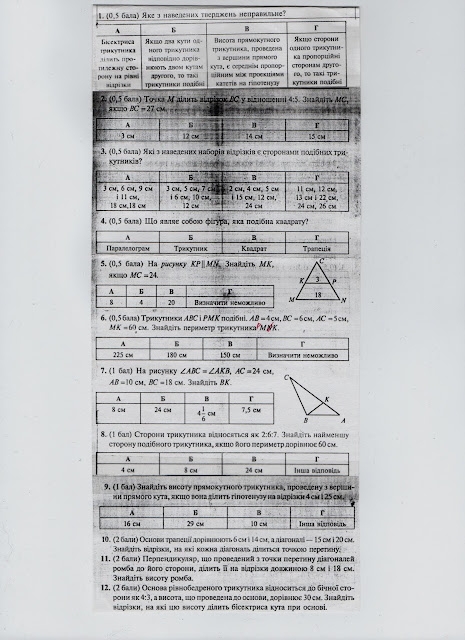 1. (0,5 бала) Яке з наведених тверджень неправильне?
А Б В Г
Бісектриса трикутника ділить протилежну сторону на рівні відрізки
Якщо два кути одного трикутника відповідно дорівнюють двом кутам другого, то такі трикутники подібні
Висота прямокутного трикутника, проведена з вершини прямого кута, є середнім пропорційним між проекціями катетів на гіпотенузу
Якщо сторони одного трикутника пропорційні сторонам другого, то такі трикутники подібні
2. (0,5 бала) Точка M ділить відрізок BC у відношенні 4:5. Знайдіть MC,
якщо BC = 27 см.
А Б В Г
3 см 12 см 14 см 15 см
3. (0,5 бала) Які з наведених наборів відрізків є сторонами подібних три-
кутників?
А Б В Г
3 см, 6 см, 9 см і 11 см, 18 см, 18 см
3 см, 5 см, 7 см і 6 см, 10 см, 12 см
2 см, 4 см, 5 см і 15 см, 12 см, 24 см
11 см, 12 см, 13 см і 22 см, 24 см, 26 см
4. (0,5 бала) Що являє собою фігура, яка подібна квадрату?
А Б В Г
Паралелограм Трикутник Квадрат Трапеція
5. (0,5 бала) На рисунку KP||MN. Знайдіть MK,
якщо MC = 24.
А Б В Г
8 4 20 Визначити неможливо
C
K 3 P
18
M N
6. (0,5 бала) Трикутники ABC і PMK подібні. AB = 4 см, BC = 6 см, AC = 5 см,
MK = 60 см. Знайдіть периметр трикутника
А Б В Г
225 см 180 см 150 см Визначити неможливо
7. (1 бал) На рисунку ∠ABC = ∠AKB, AC = 24 см,
AB = 10 см, BC = 18 см. Знайдіть BK.
А Б В Г
8 см 24 см 4 1/6 см 7,5 см
C
K
B A
8. (1 бал) Сторони трикутника відносяться як 2:6:7. Знайдіть найменшу
сторону подібного трикутника, якщо його периметр дорівнює 60 см.
А Б В Г
4 см 8 см 24 см Інша відповідь
9. (1 бал) Знайдіть висоту прямокутного трикутника, проведену з верши-
ни прямого кута, якщо вона ділить гіпотенузу на відрізки 4 см і 25 см.
А Б В Г
16 см 29 см 10 см Інша відповідь
10. (2 бали) Основи трапеції дорівнюють 6 см і 14 см, а діагоналі — 15 см і 20 см.
Знайдіть відрізки, на які кожна діагональ ділиться точкою перетину.
11. (2 бали) Перпендикуляр, що проведений з точки перетину діагоналей
ромба до його сторони, ділить її на відрізки довжиною 8 см і 18 см.
Знайдіть висоту ромба.
12. (2 бали) Основа рівнобедреного трикутника відноситься до бічної сто-
рони як 4:3, а висота, що проведена до основи, дорівнює 30 см. Знайдіть
відрізки, на які цю висоту ділить бісектриса кута при основі.